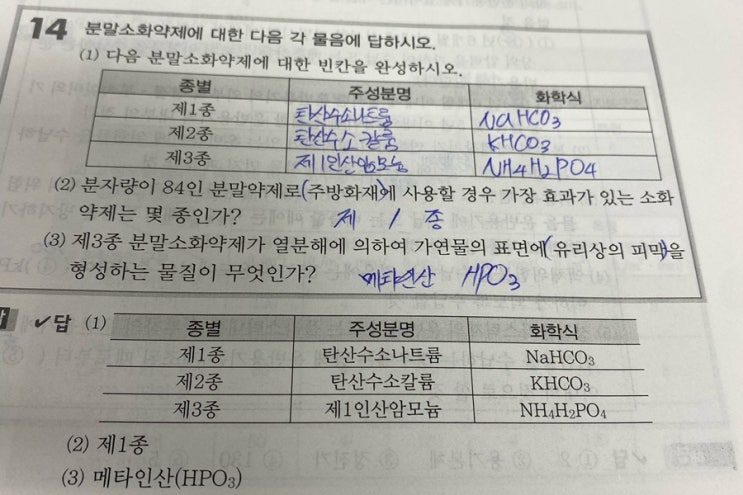 14 분말소화약제에 대한 다음 각 물음에 답하시오.
(1) 다음 분말소화약제에 대한 빈칸을 완성하시오.
종별 주성분명 화학식
제1종 탄산수소나트륨 NaHCO3
제2종 탄산수소칼륨 KHCO3
제3종 제1인산암모늄 NH4H2PO4
(2) 분자량이 84인 분말약제로(주방화재)에 사용할 경우 가장 효과가 있는 소화
약제는 몇 종인가? 제 1 종
(3) 제3종 분말소화약제가 열분해에 의하여 가연물의 표면에(유리상의 피막)을
형성하는 물질이 무엇인가? 메타인산 HPO3
✓답 (1)
종별 주성분명 화학식
제1종 탄산수소나트륨 NaHCO₃
제2종 탄산수소칼륨 KHCO₃
제3종 제1인산암모늄 NH₄H₂PO₄
(2) 제1종
(3) 메타인산(HPO₃)